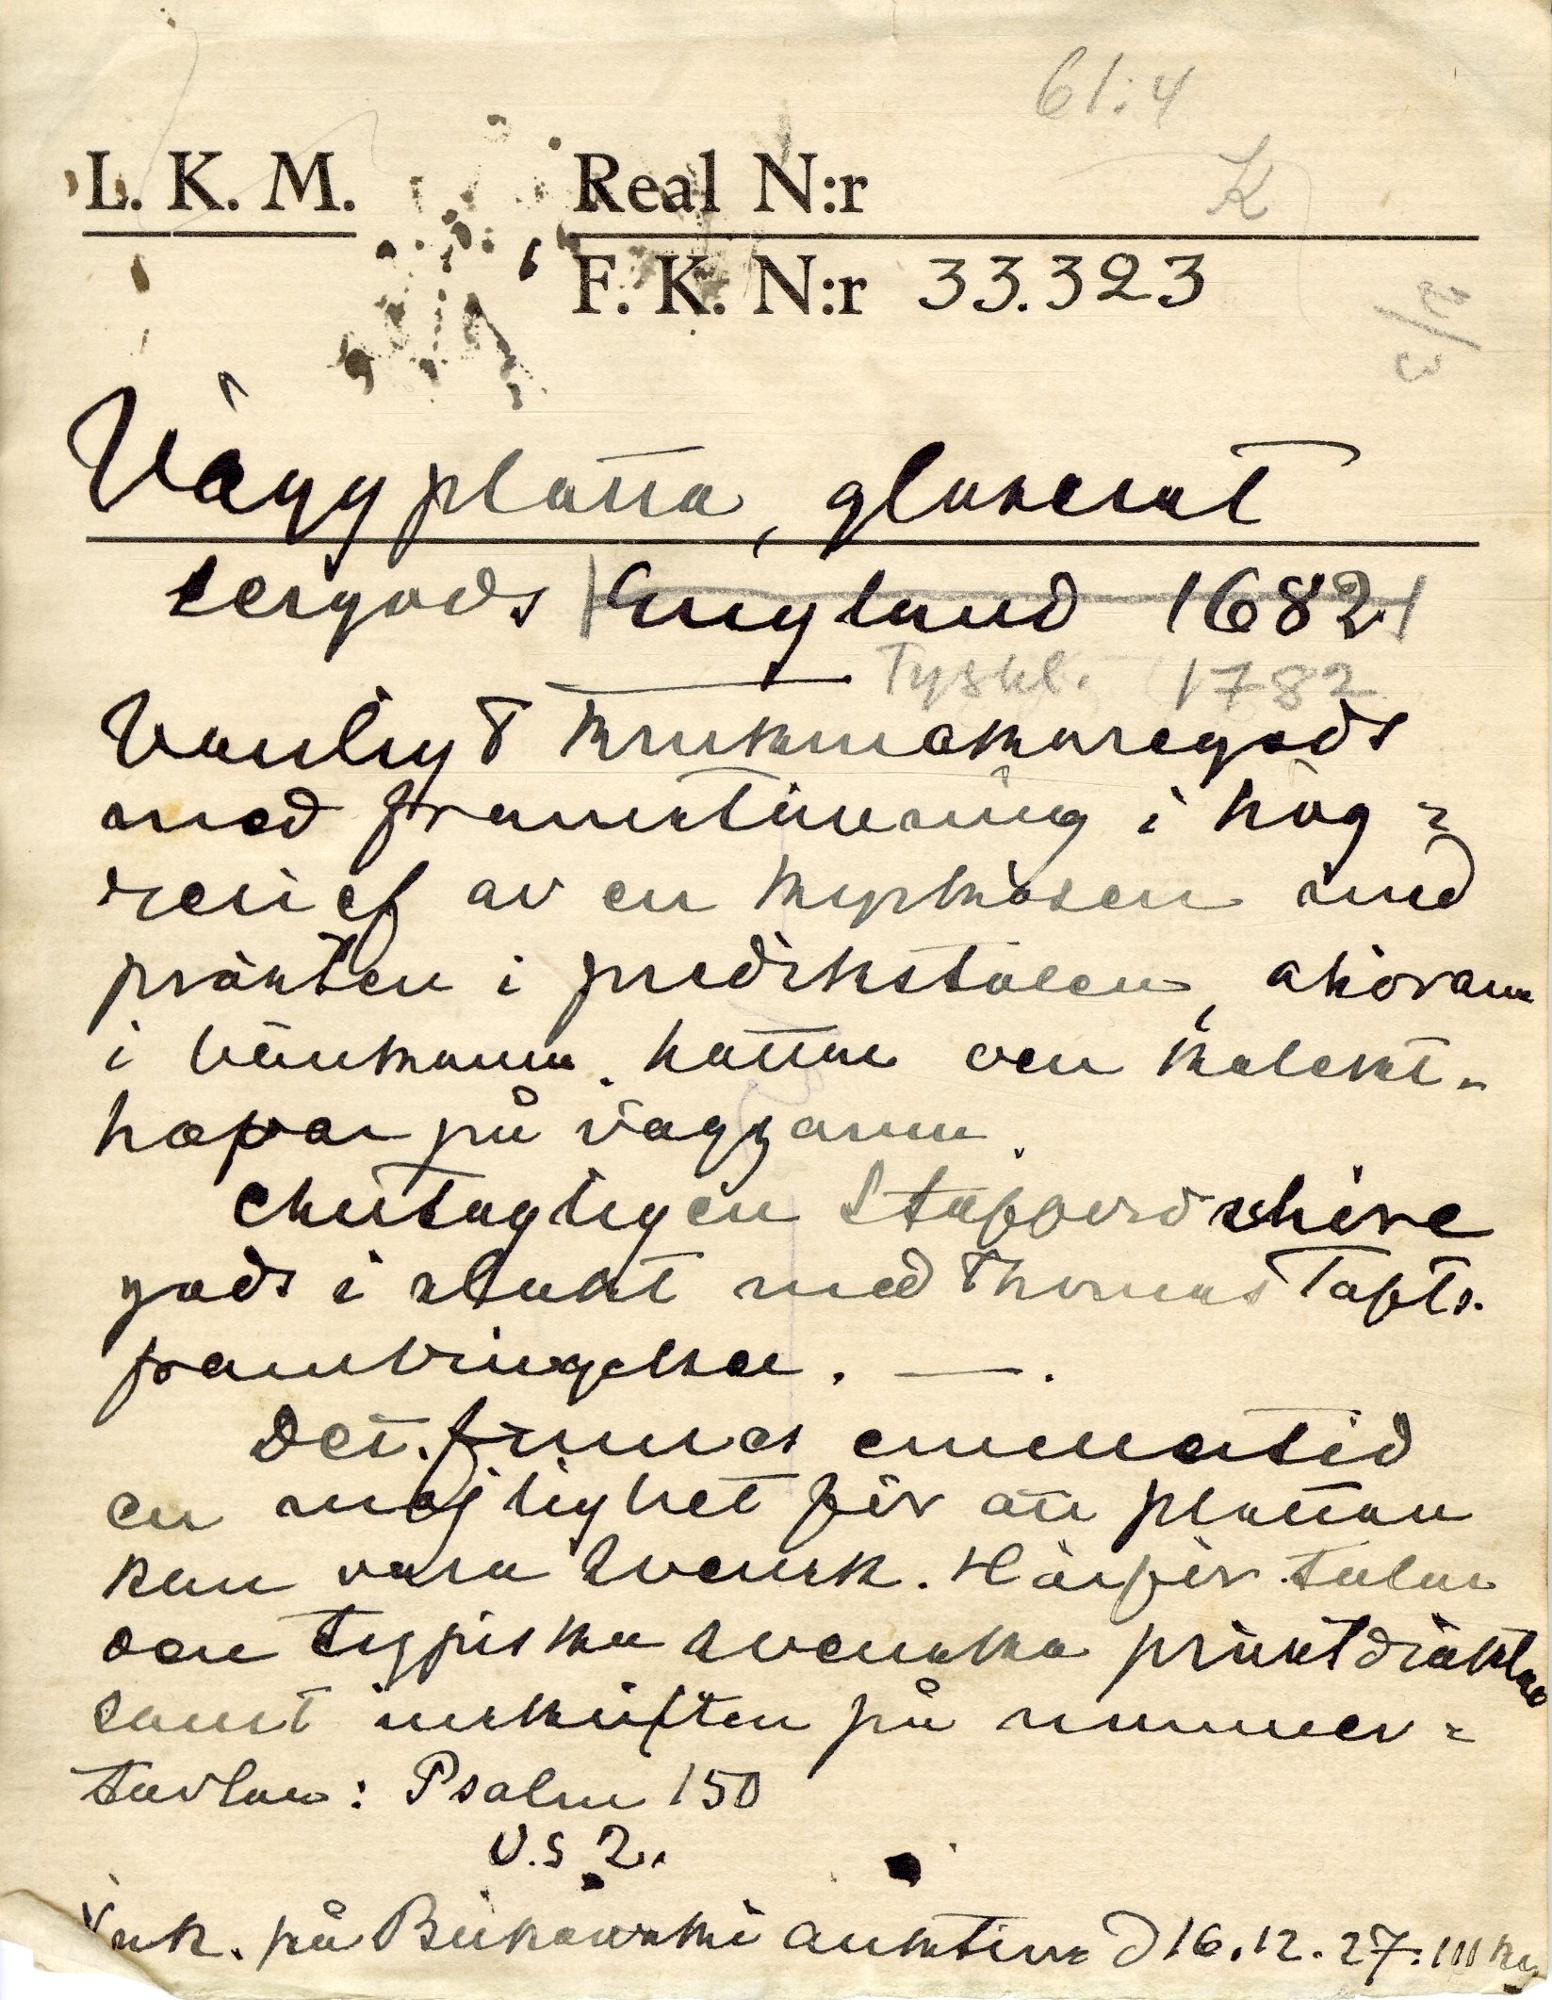 61:4
L. K. M. Real N:r K
F. K. N:r 33.323
Väggplatta, glaserat
lergods England 1682
Tyskl. 1782
Vanligt krukmakaregods
med framställning i hög-
relief av en kyrkscen med
prästen i predikstolen, åhörarna
i bänkarna. hattar och
på väggarna.
Antagligen Staffordshire
gods i släkt med Thomas Tofts
frambringelser. —.
Det finnes emellertid
en möjlighet för att plattan
kan vara svensk. Härför talar
den typiska svenska prästdräkten
samt inskriften på nummer-
tavlan: Psalm 150
V.S 2.
Ink. på Bukowski auktion d 16.12.27.